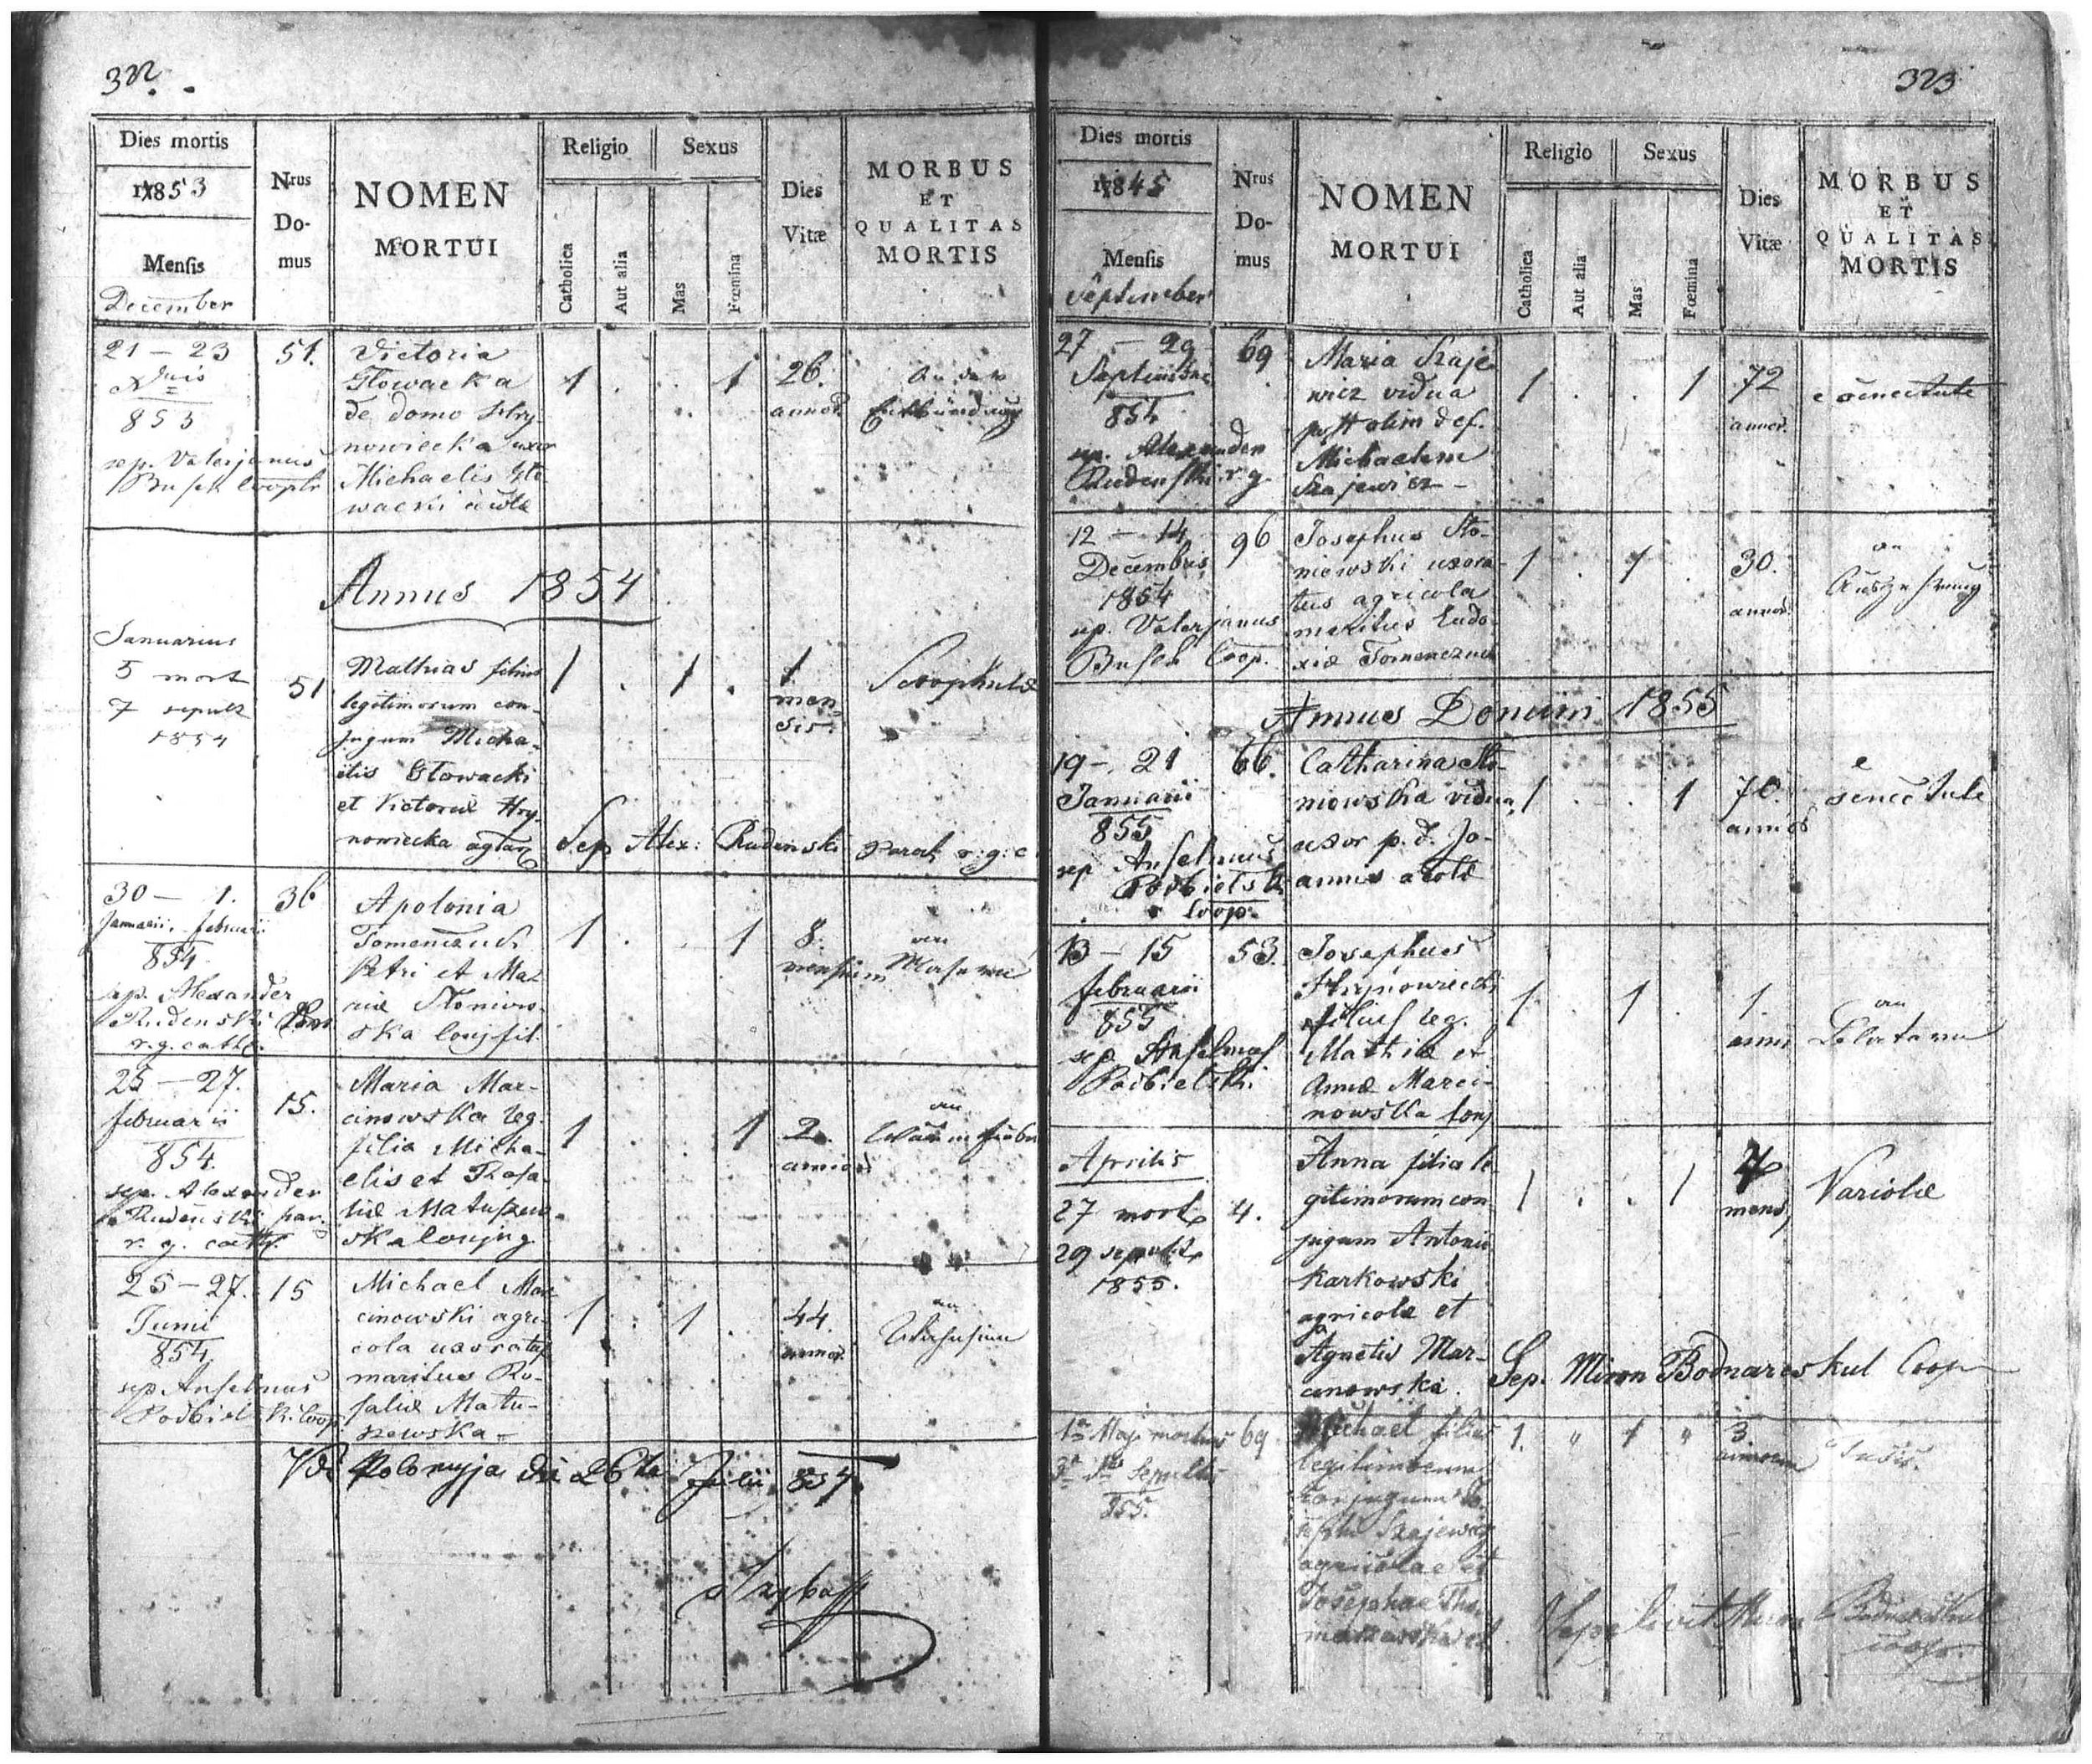 322.
Dies mortis
1853
Mensis
December
Nrus
Do-
mus
NOMEN
MORTUI
Religio
Catholica
Aut alia
Sexus
Mas
Fœmina
Dies
Vitæ
MORBUS
ET
QUALITAS
MORTIS
21 – 23
Xbris
853
sep. Valerjanus
Busek Cooptr
51.
Victoria
Głowacka
de domo Hry-
nowiecka uxor
Michaelis Gło-
wacki
1 . . 1
26.
annor.
an der
Entbindung
Annus 1854
Januarius
5 mort
7 sepult
1854
51
Mathias filius
legitimorum con-
jugum Micha-
elis Głowacki
et Victoriæ Hry-
nowiecka
1 . 1 .
1
men
sis.
Scrophulæ
Sep Alex: Rudenski Paroch r. g. c.
30 – 1.
Januarii, februarii
854
sep. Alexander
Rudenski
r. g. cath.
36
Apolonia
Tomenczuk
Petri et Ma-
riæ Słoniow-
ska conj fil.
1 . . 1
8.
mensium
an
Masern
25 – 27.
februarii
854.
sep. Alexander
Rudenski par.
r. g. cath.
15.
Maria Mar-
cinowska leg.
filia Micha-
elis et Rosa-
liæ Matuszew-
ska conjug
1 . . 1
2.
annor
an
25 – 27.
Junii
854
sep Anselmus
Podbielski. Coop.
15
Michael Mar-
cinowski agri-
cola uxoratus
maritus Ro-
saliæ Matu-
szewska –
1 . 1 .
44.
annor.
an
26ta Julii 854
323
Dies mortis
1845
Mensis
September
Nrus
Do-
mus
NOMEN
MORTUI
Religio
Catholica
Aut alia
Sexus
Mas
Fœmina
Dies
Vitæ
MORBUS
ET
QUALITAS
MORTIS
27 – 29
Septembr
854
sep. Alexander
Rudenski r. g.
69
Maria Szaje-
wicz vidua
post olim def.
Michaelem
Szajewicz –
1 . . 1
72
annor.
e senectute
12 – 14
Decembris
1854
sep. Valerjanus
Busek Coop.
96
Josephus Sło-
niowski uxora-
tus agricola
maritus Eudo-
xiæ Tomenczuk
1 . 1 .
30.
annor.
an
Auszehrung
Annus Domini 1855
19 – 21
Januarii
855
sep Anselmus
Podbielski
Coop.
66.
Catharina Sło-
niowska vidua,
uxor p. d. Jo-
annis
1 . . 1
70.
annor
e
senectute
13 – 15
februarii
855
sep Anselmus
Podbielski.
53.
Josephus
Hrynowiecki
filius leg.
Mathiæ et
Annæ Marci-
nowska conj
1 . 1 .
1.
anni
an
Aprilis
27 mort
29 sepult
1855.
4.
Anna filia le-
gitimorum con-
jugum Antonii
Karkowski
agricolæ et
Agnetis Mar-
cinowska.
1 . . 1
7
mens,
Variolæ
Sep. Miron Bodnareskul Coop
1a Maji mortuus
3a Sepultus
855.
69
Michael filius
legitimorum
conjugum Jo-
sephi Szajewicz
agricolae et
Josephae
1. " 1 "
3
annorum
Tusis.
Sepelivit Miron Bodnareskul
coop.